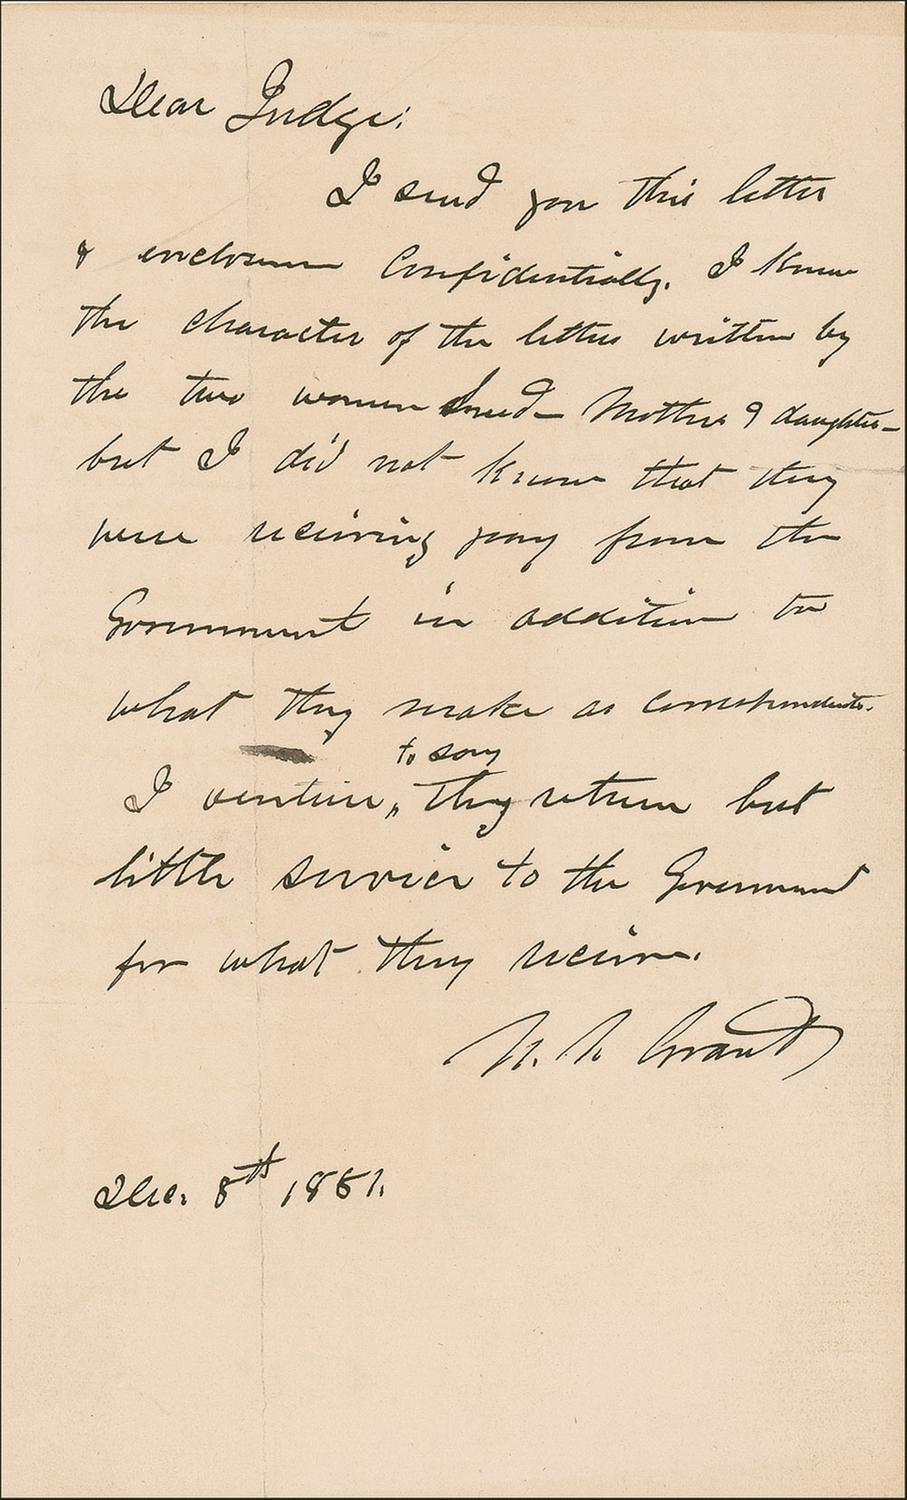 Dear Judge:
I send you this letter
& enclosure Confidentially. I knew
the character of the letters written by
the two women Snead– Mother & daughter–
but I did not know that they
were receiving pay from the
Government in addition to
what they make as correspondents.
to say
I venture, they return but
little service to the Government
for what they receive.
U. S. Grant
Dec. 8th 1881.